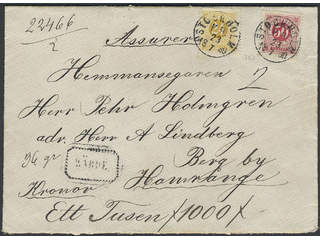 22466
2
Assurer
STOCKHOLM
STOCKHOLM
50
Hemmansegaren
2
Herr Pehr Holmgren
adr. Herr A Lindberg
Berg by
VÄRDE.
Hamrånge
Kronor
Ett Tusen /1000/